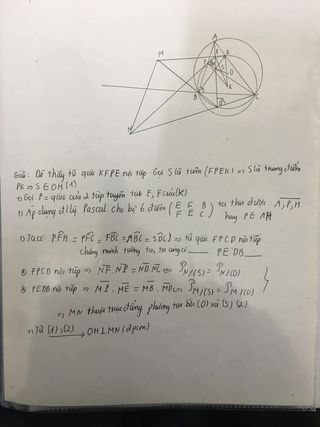 A
M
F
E
P
O
H
K
B
C
D
N
Giải: Dễ thấy tứ giác KFPE nội tiếp. Gọi S là tâm (FPEK) => S là trung điểm
PK => S ∈ OH (1)
+) Gọi P = giao của 2 tiếp tuyến tại E, F của (K)
+) Áp dụng đ/lý Pascal cho bộ 6 điểm (E F B / F E C) ta thu được A, P, H
hay P ∈ AH
+) Ta có: PFH = PFC = FBC = ABC = SDC => tứ giác FPCD nội tiếp
chứng minh tương tự, ta cũng có PEDB
FPCD nội tiếp => NF. NP = ND. NC => P N/(S) = P N/(O)
PEDB nội tiếp => MP. ME = MB. MD => P M/(S) = P M/(O)
=> MN thuộc trục đẳng phương tạo bởi (O) và (S) (2)
+) Từ (1), (2) → OH ⊥ MN (đpcm)